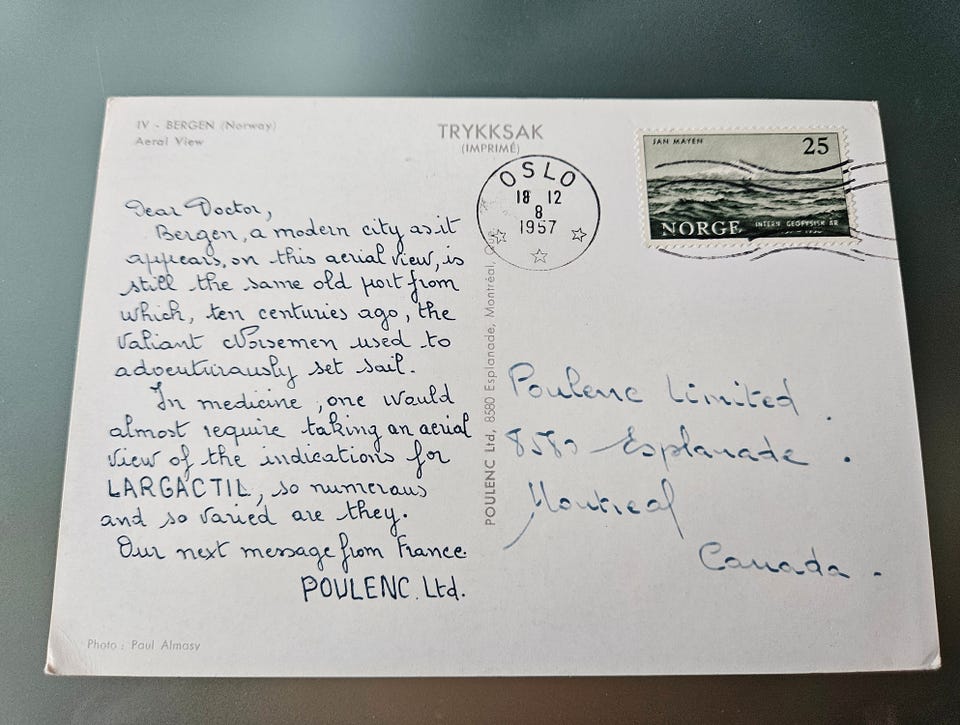 IV - BERGEN (Norway)
Aeral View
TRYKKSAK
(IMPRIMÉ)
OSLO
18 12
8
1957
JAN MAYEN
25
NORGE
INTERN. GEOFYSISK ÅR
Dear Doctor,
Bergen, a modern city as it
appears, on this aerial view, is
still the same old port from
which, ten centuries ago, the
valiant Norsemen used to
adventurously set sail.
In medicine, one would
almost require taking an aerial
view of the indications for
LARGACTIL, so numerous
and so varied are they.
Our next message from France.
POULENC. Ltd.
POULENC Ltd, 8580 Esplanade, Montréal, Qué.
Poulenc Limited.
8580 Esplanade.
Montreal
Canada.
Photo : Paul Almasy